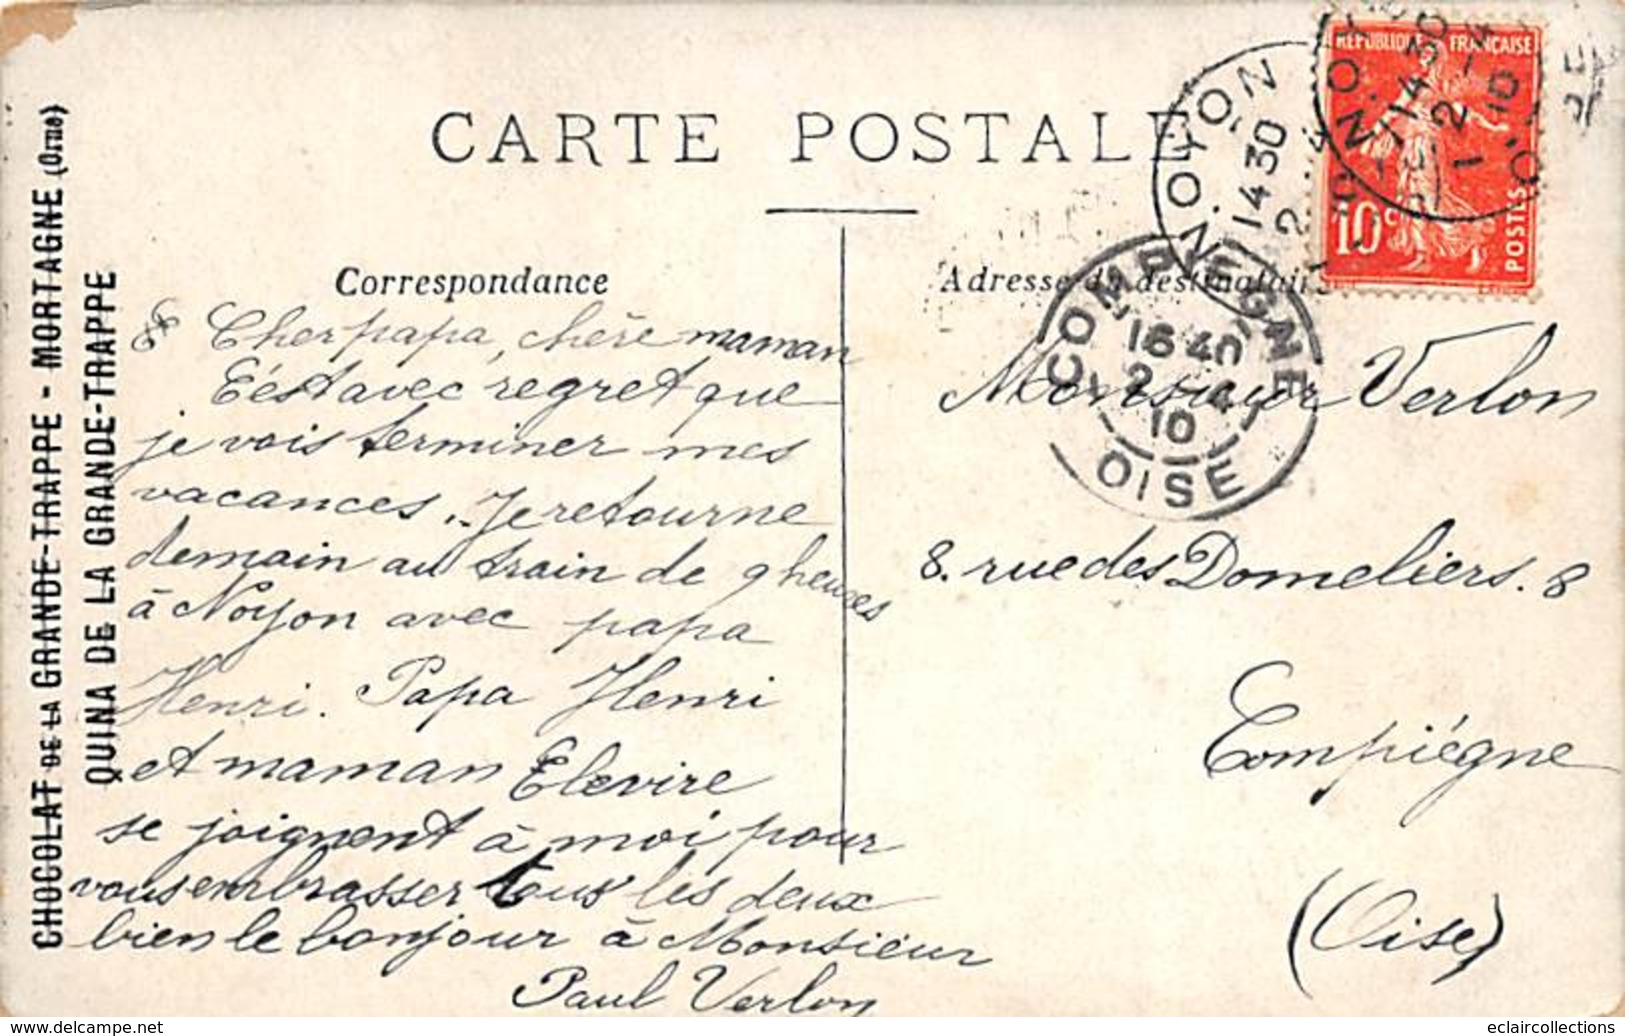 CARTE POSTALE
CHOCOLAT DE LA GRANDE-TRAPPE - MORTAGNE (Orne)
QUINA DE LA GRANDE-TRAPPE
Correspondance
Cher papa, chère maman
C'est avec regret que
je vois terminer mes
vacances. Je retourne
demain au train de 9 heures
à Noyon avec papa
Henri. Papa Henri
et maman Elevire
se joignent à moi pour
vous embrasser tous les deux
bien le bonjour à Monsieur
Paul Verlon
Adresse du destinataire
Monsieur Verlon
8. rue des Domeliers. 8
Compiégne
(Oise)
REPUBLIQUE FRANÇAISE
10c
POSTES
NOYON
14 30
2 - 4
10
NOYON
14 30
2 - 4
COMPIEGNE
16 40
2 - 4
10
OISE
eclaircollections